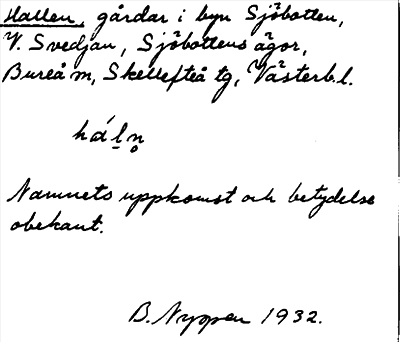 Hallen, gårdar i byn Sjöbotten,
V. Svedjan, Sjöbottens ägor,
Bureå m, Skellefteå tg, Västerb.l.
hál̠n̥
Namnets uppkomst och betydelse
obekant.
B. Nyppen 1932.